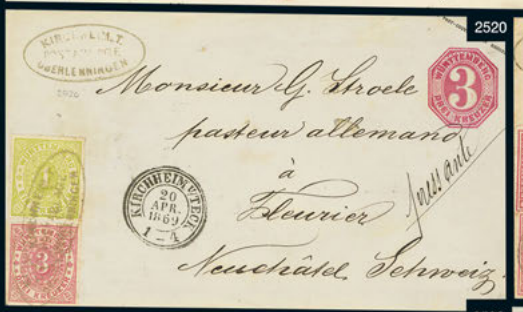 2520
KIRCHHEIM U.T.
POSTABLAGE
OBERLENNINGEN
WÜRTTEMBERG
3
DREI KREUZER
Monsieur G. Stroele
pasteur allemand
à
Fleurier
Neuchâtel. Schweiz.
pressante
KIRCHHEIM U/TECK
20
APR.
1869
1-4
1
3